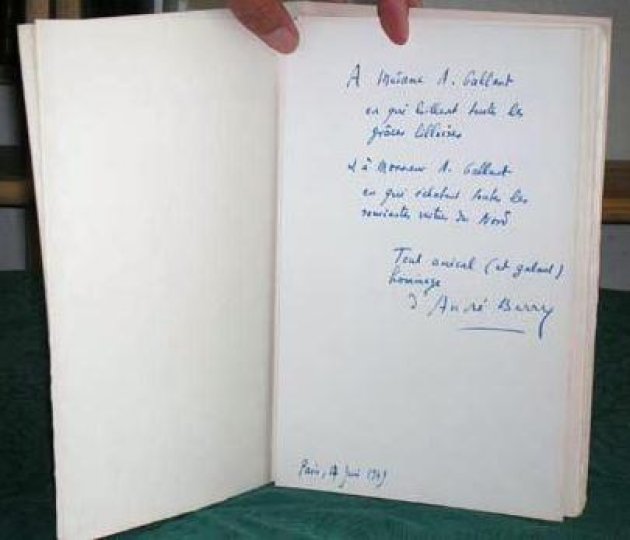 À Madame A. Gallant
en qui brillent toutes les
grâces lilloises
& à Monsieur A. Gallant
en qui éclatent toutes les
vertus du Nord
Tout amical (et galant)
hommage
d'André Berry
Paris, juin 1969